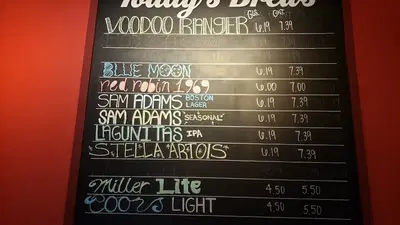 Today's Brews
GLS. GNT.
VOODOO RANGER 6.19 7.39
BLUE MOON 6.19 7.39
red robin 1969 6.00 7.00
SAM ADAMS BOSTON LAGER 6.19 7.39
SAM ADAMS "SEASONAL" 6.19 7.39
LAGUNITAS IPA 6.19 7.39
STELLA ARTOIS 6.19 7.39
Miller Lite 4.50 5.50
Coors LIGHT 4.50 5.50